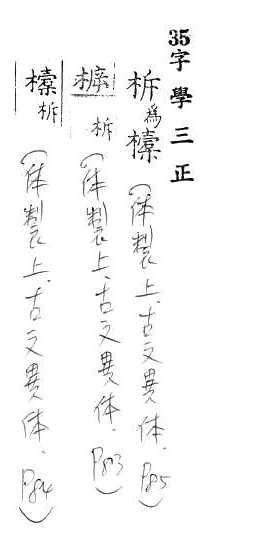 35字學三正
柝為欜（体製上、古文異体、P85）
柝（体製上、古文異体、P83）
欜柝（体製上、古文異体、P84）